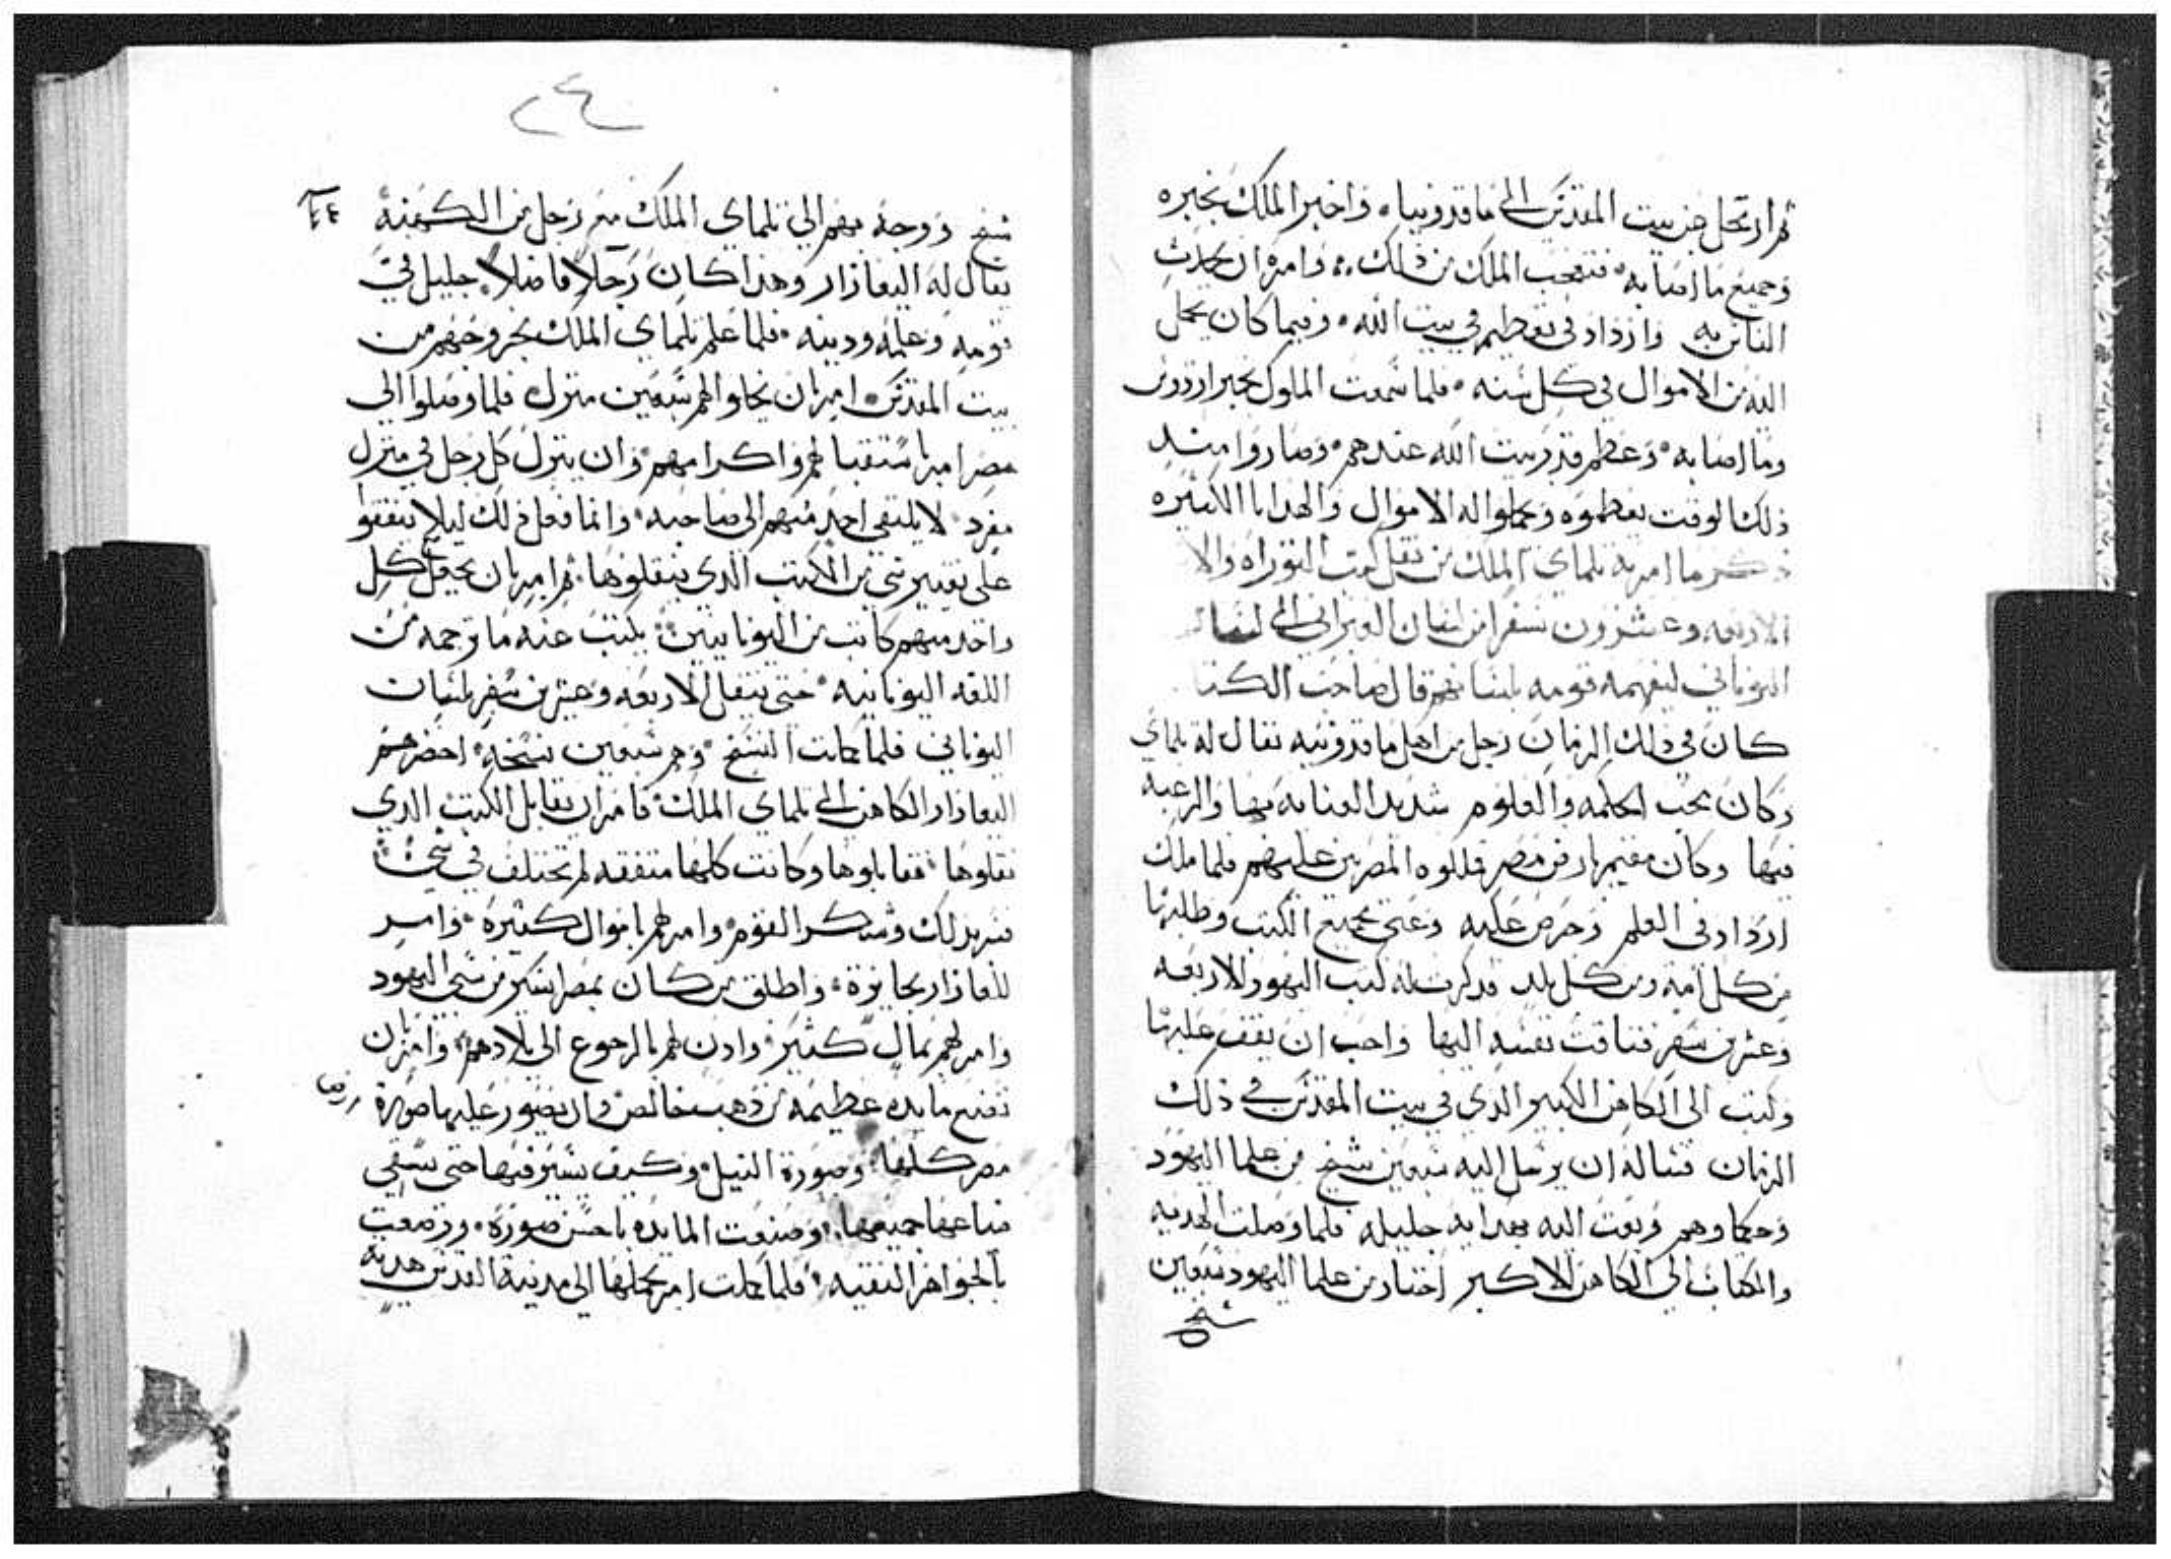 ثم ارتحل من بيت المقدس الى ماقدونيا، واخبر الملك بخبره
وجميع ما اصابه، فتعجب الملك من ذلك، وامره ان يحدث
الناس به وازداد في تعظيم بيت الله، وفيما كان يحمل
اليه من الاموال في كل سنه، فلما سمعت الملوك بخبر اردروس
وما اصابه، وعظم قدر بيت الله عندهم، وصاروا منذ
ذلك الوقت يعظموه وحملوا اله الاموال والهدايا الكثيره
ذكر ما امر به تلماى الملك من نقل كتب التوراه والا
الاربعه وعشرون سفرا من لسان العبراني الى لسا
اليوناني ليفهمه قومه بلسانهم قال صاحب الكتا
كان في ذلك الزمان رجل من اهل ماقدونيه يقال له تلماى
وكان يحب الحكمه والعلوم شديد العنايه بها والرغبه
فيها وكان مقيم بارض مصر فملكوه المصريين عليهم فلما ملك
ازداد في العلم وحرص عليه وعنى بجميع الكتب وطلبها
من كل امه ومن كل بلد فذكرت له كتب اليهود الاربعه
وعشرين سفر فتاقت نفسه اليها واحب ان يقف عليها
وكتب الى الكاهن الكبير الذي في بيت المقدس في ذلك
الزمان فساله ان يرسل اليه سبعين شيخ من علما اليهود
وحكماوهم وبعت اليه بهدايه جليله فلما وصلت الهديه
والكتاب الى الكاهن الاكبر اختار من علما اليهود سبعين
شيخ
٢٤
٢٤
شيخ ووجه بهم الى تلماى الملك مع رجل من الكهنة
يقال له اليعازار وهذا كان رجلا فاضلا جليل في
قومه وعلمه ودينه، فلما علم تلماى الملك بخروجهم من
بيت المقدس امر ان يخلوا لهم سبعين منزل، فلما وصلوا الى
مصر امر باستقبالهم واكرامهم، وان ينزل كل رجل في منزل
مفرد لا يلتقي احد منهم الى صاحبه، وانما فعل ذلك ليلا يتفقوا
على تغيير شي من الكتب الذي ينقلوها، ثم امر بان يجعل كل
واحد منهم كاتب من اليونانيين يكتب عنه ما ترجمه من
اللغه اليونانيه، حتى ينقل الاربعه وعشرين سفر بلسان
اليوناني فلما كملت النسخ وهم سبعين نسخة، احضرهم
اليعازار الكاهن الى تلماى الملك، فامر ان يقابل الكتب الذي
نقلوها، فقابلوها وكانت كلها متفقه لم تختلف في شي
فسر بذلك وشكر القوم، وامر لهم باموال كثيره، وامر
للعازار بجايزة، واطلق من كان بمصر من سبي اليهود
وامر لهم بمال كثير، واذن لهم بالرجوع الى بلادهم، وامر بان
تصنع مايده عظيمه من ذهب خالص وان يصور عليها صورة ارض
مصر كلها، وصورة النيل وكيف يسير فيها حتى يسقي
ضياعها جميعها، وصنعت المايده باحسن صوره، ورصعت
بالجواهر النقيه، فلما كملت امر بحملها الى مدينة القدس هديه